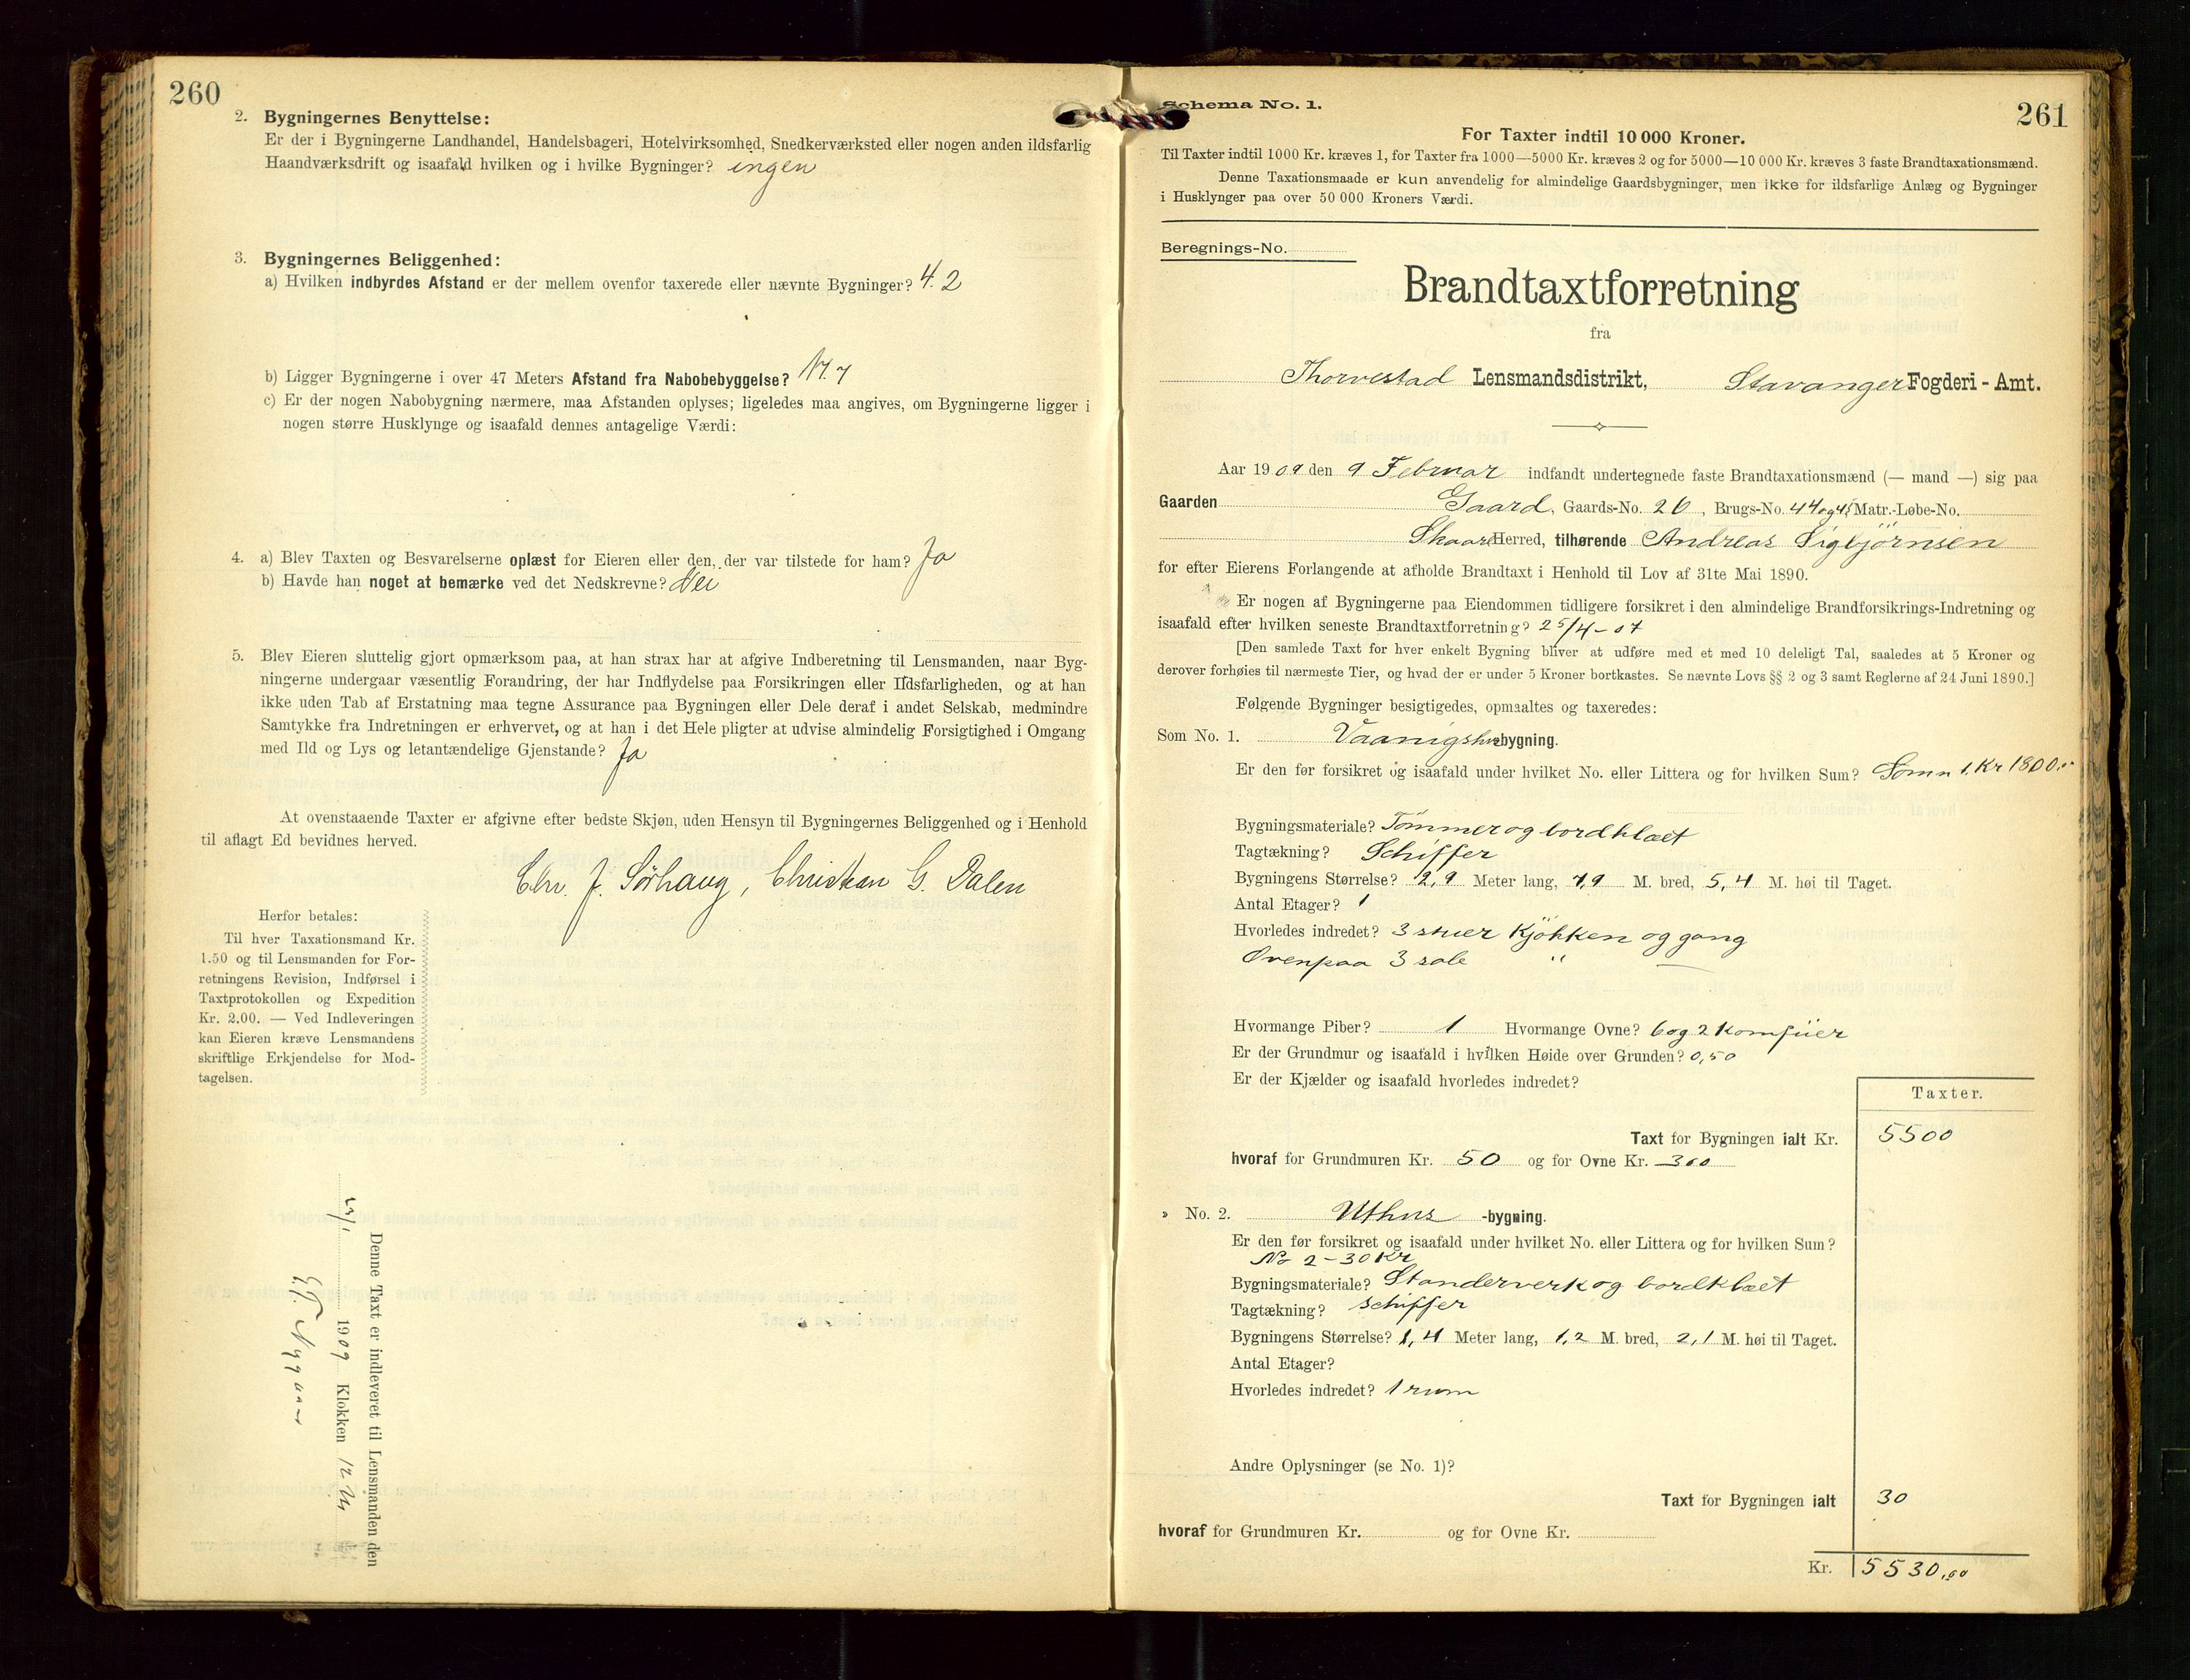 260
2. Bygningernes Benyttelse:
Er der i Bygningerne Landhandel, Handelsbageri, Hotelvirksomhed, Snedkerværksted eller nogen anden ildsfarlig
Haandværksdrift og isaafald hvilken og i hvilke Bygninger? ingen
3. Bygningernes Beliggenhed:
a) Hvilken indbyrdes Afstand er der mellem ovenfor taxerede eller nævnte Bygninger? 4.2
b) Ligger Bygningerne i over 47 Meters Afstand fra Nabobebyggelse?
c) Er der nogen Nabobygning nærmere, maa Afstanden oplyses; ligeledes maa angives, om Bygningerne ligger i
nogen større Husklynge og isaafald dennes antagelige Værdi:
4. a) Blev Taxten og Besvarelserne oplæst for Eieren eller den, der var tilstede for ham? Ja
b) Havde han noget at bemærke ved det Nedskrevne? Nei
5. Blev Eieren sluttelig gjort opmærksom paa, at han strax har at afgive Indberetning til Lensmanden, naar Byg-
ningerne undergaar væsentlig Forandring, der har Indflydelse paa Forsikringen eller Ildsfarligheden, og at han
ikke uden Tab af Erstatning maa tegne Assurance paa Bygningen eller Dele deraf i andet Selskab, medmindre
Samtykke fra Indretningen er erhvervet, og at han i det Hele pligter at udvise almindelig Forsigtighed i Omgang
med Ild og Lys og letantændelige Gjenstande? Ja
At ovenstaaende Taxter er afgivne efter bedste Skjøn, uden Hensyn til Bygningernes Beliggenhed og i Henhold
til aflagt Ed bevidnes herved.
Chr. J. Sørhaug, Christian G. Dalen
Herfor betales:
Til hver Taxationsmand Kr.
1.50 og til Lensmanden for For-
retningens Revision, Indførsel i
Taxtprotokollen og Expedition
Kr. 2.00. — Ved Indleveringen
kan Eieren kræve Lensmandens
skriftlige Erkjendelse for Mod-
tagelsen.
Denne Taxt er indleveret til Lensmanden den
1909 Klokken 12
Schema No. 1.
261
For Taxter indtil 10 000 Kroner.
Til Taxter indtil 1000 Kr. kræves 1, for Taxter fra 1000—5000 Kr. kræves 2 og for 5000—10 000 Kr. kræves 3 faste Brandtaxationsmænd.
Denne Taxationsmaade er kun anvendelig for almindelige Gaardsbygninger, men ikke for ildsfarlige Anlæg og Bygninger
i Husklynger paa over 50 000 Kroners Værdi.
Beregnings-No.
Brandtaxtforretning
fra
Thorvestad Lensmandsdistrikt, Stavanger Fogderi - Amt.
Aar 1909 den 9 Februar indfandt undertegnede faste Brandtaxationsmænd (— mand —) sig paa
Gaarden Gaard, Gaards-No. 26, Brugs-No. 44 og 45 Matr.-Løbe-No.
Skaare Herred, tilhørende Andreas Sigbjørnsen
for efter Eierens Forlangende at afholde Brandtaxt i Henhold til Lov af 31te Mai 1890.
Er nogen af Bygningerne paa Eiendommen tidligere forsikret i den almindelige Brandforsikrings-Indretning og
isaafald efter hvilken seneste Brandtaxtforretning? 25/4-07
[Den samlede Taxt for hver enkelt Bygning bliver at udføre med et med 10 deleligt Tal, saaledes at 5 Kroner og
derover forhøies til nærmeste Tier, og hvad der er under 5 Kroner bortkastes. Se nævnte Lovs §§ 2 og 3 samt Reglerne af 24 Juni 1890.]
Følgende Bygninger besigtigedes, opmaaltes og taxeredes:
Som No. 1. Vaanigshusbygning.
Er den før forsikret og isaafald under hvilket No. eller Littera og for hvilken Sum? Som n 1. Kr 1800.00
Bygningsmateriale? Tømmer og bordklæt
Tagtækning? Schiffer
Bygningens Størrelse? 12,9 Meter lang, 7,9 M. bred, 5,4 M. høi til Taget.
Antal Etager? 1
Hvorledes indredet? 3 stuer Kjøkken og gang
Ovenpaa 3 sale " —
Hvormange Piber? 1 Hvormange Ovne? 6 og 2 Komfüer
Er der Grundmur og isaafald i hvilken Høide over Grunden? 0,50
Er der Kjælder og isaafald hvorledes indredet?
Taxter.
Taxt for Bygningen ialt Kr. 5500
hvoraf for Grundmuren Kr. 50 og for Ovne Kr. 300
» No. 2. Uthus -bygning.
Er den før forsikret og isaafald under hvilket No. eller Littera og for hvilken Sum?
No 2 - 30 Kr
Bygningsmateriale? Standerverk og bordklæt
Tagtækning? schiffer
Bygningens Størrelse? 1,4 Meter lang, 1,2 M. bred, 2,1 M. høi til Taget.
Antal Etager?
Hvorledes indredet? 1 rum
Andre Oplysninger (se No. 1)?
Taxt for Bygningen ialt 30
hvoraf for Grundmuren Kr. og for Ovne Kr.
Kr. 5530,00